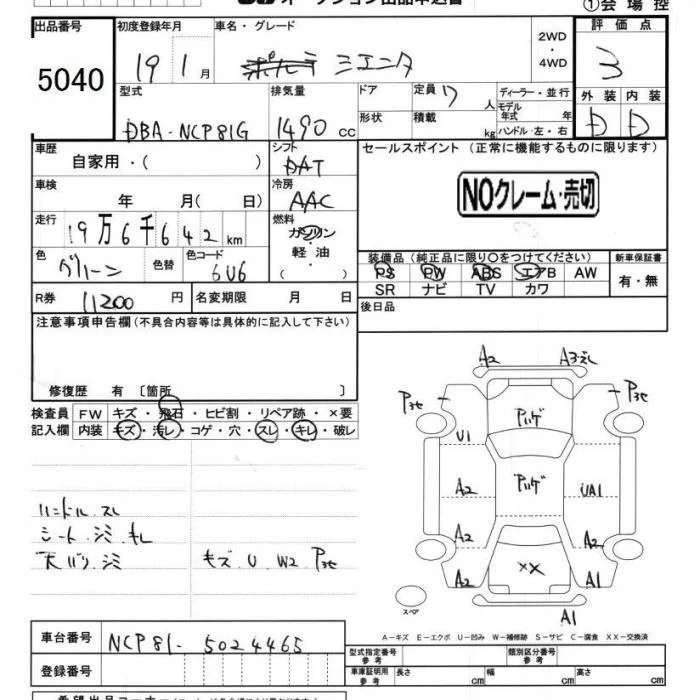 ①会場控
出品番号
5040
初度登録年月
19 1月
車名・グレード
シエンタ
2WD
・
4WD
評価点
3
外装 内装
D D
型式
DBA-NCP81G
排気量
1490 cc
ドア
形状
定員 7 人
積載 kg
ディーラー・並行
モデル年式 年
ハンドル 左・右
車歴
自家用・( )
シフト
DAT
セールスポイント (正常に機能するものに限ります)
NOクレーム・売切
車検
年 月( 日)
冷房
AAC
走行
19万6千642km
燃料
ガソリン
・
軽油
( )
色
グリーン
色替
色コード
6U6
装備品 (純正品に限り○をつけてください)
PS PW ABS エアB AW
SR ナビ TV カワ
新車保証書
有・無
R券
11200 円
名変期限 月 日
後日品
注意事項申告欄 (不具合内容等は具体的に記入して下さい)
修復歴 有 〔箇所 〕
検査員記入欄
FW キズ・飛石・ヒビ割・リペア跡・×要
内装 キズ・汚レ・コゲ・穴・スレ・キレ・破レ
ハンドル.スレ
シート.シミ.キレ
天バリ.シミ
キズ.U W2
A2
U1
A2
A2
A2
××
UA1
A1
A1
スペア
A-キズ E-エクボ U-凹み W-補修跡 S-サビ C-腐食 XX-交換済
車台番号
NCP81-5024465
登録番号
型式指定番号
参考
類別区分番号
参考
車庫証明用
参考
長さ cm 幅 cm 高さ cm